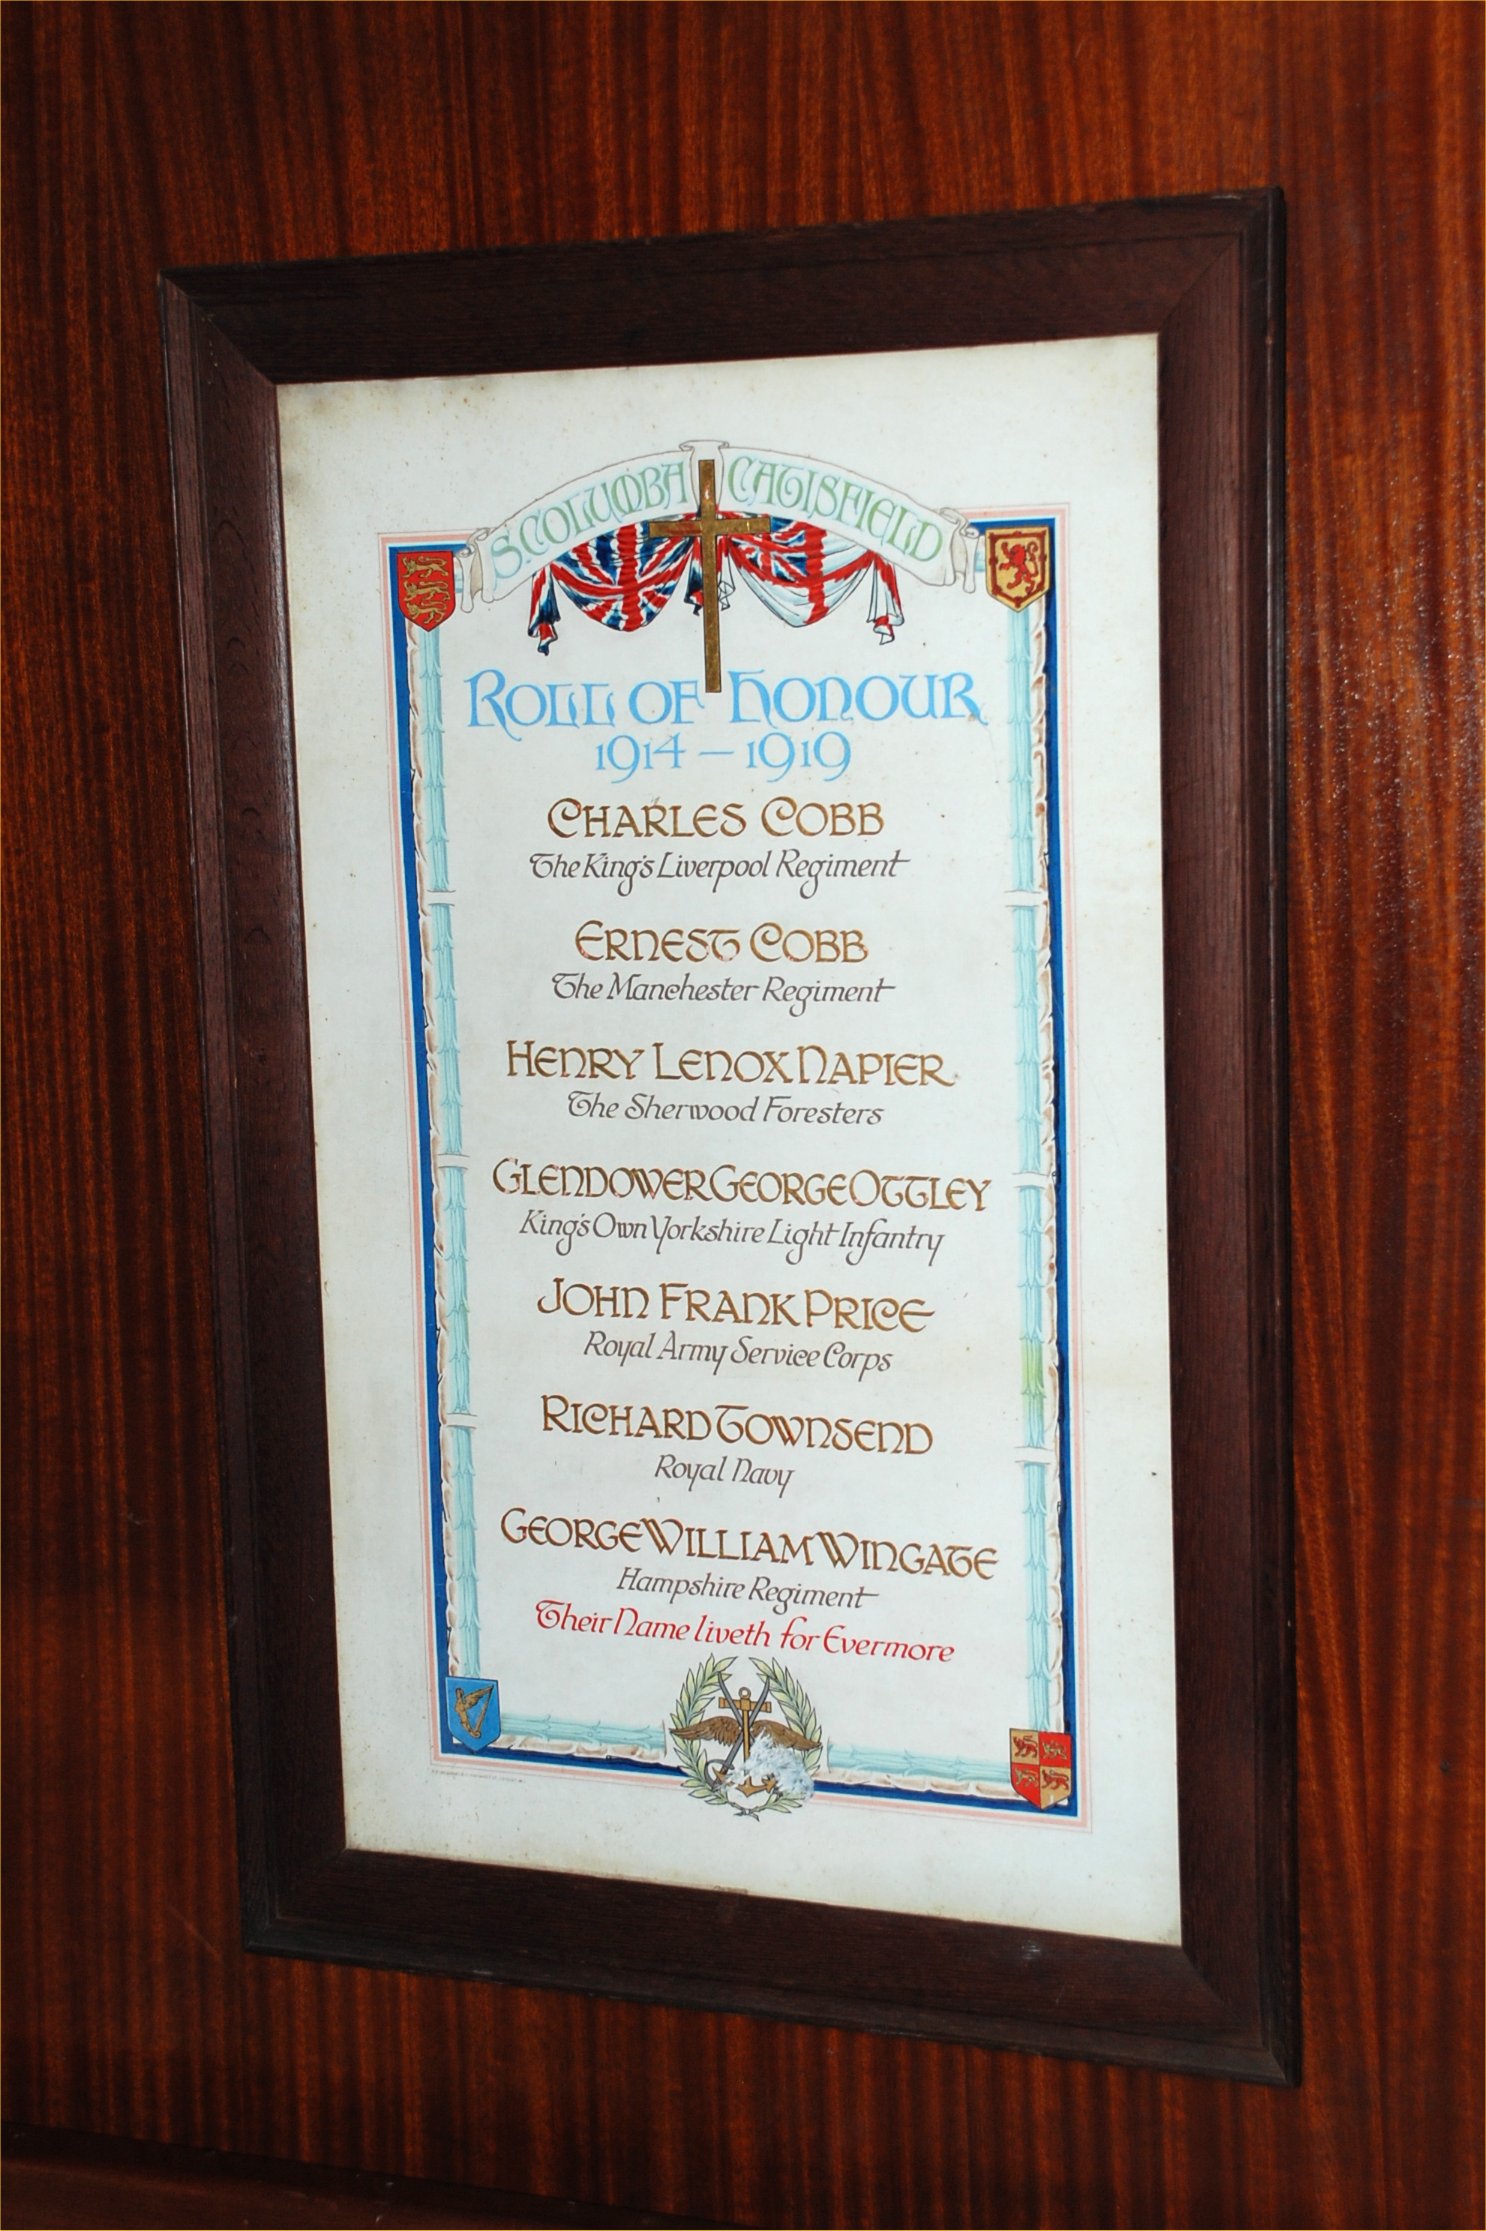 S. COLUMBA CATISFIELD
ROLL OF HONOUR
1914 – 1919
CHARLES COBB
The King's Liverpool Regiment
ERNEST COBB
The Manchester Regiment
HENRY LENOX NAPIER
The Sherwood Foresters
GLENDOWER GEORGE OTTLEY
King's Own Yorkshire Light Infantry
JOHN FRANK PRICE
Royal Army Service Corps
RICHARD TOWNSEND
Royal Navy
GEORGE WILLIAM WINGATE
Hampshire Regiment
Their Name liveth for Evermore